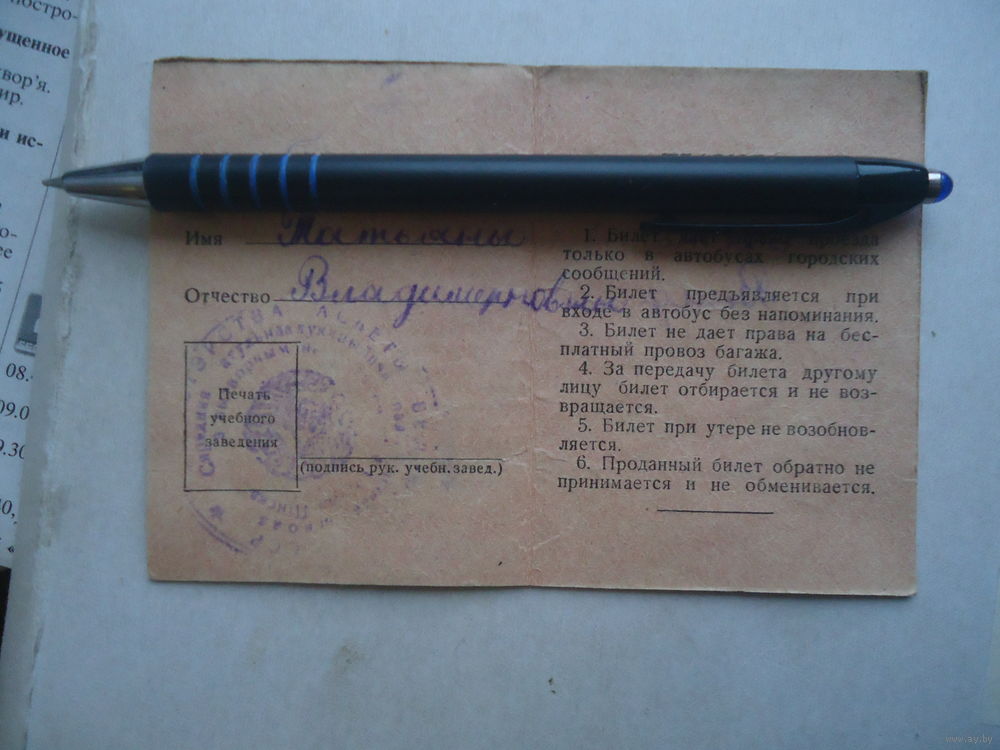 постро-
ущенное
вор'я.
ир.
и ис-
о-
ее
08.
09.0
9.30
40,
Имя Татьяны
Отчество Владимировны
Печать
учебного
заведения
(подпись рук. учебн. завед.)
1. Билет дает право проезда
только в автобусах городских
сообщений.
2. Билет предъявляется при
входе в автобус без напоминания.
3. Билет не дает права на бес-
платный провоз багажа.
4. За передачу билета другому
лицу билет отбирается и не воз-
вращается.
5. Билет при утере не возобнов-
ляется.
6. Проданный билет обратно не
принимается и не обменивается.
www.ay.by